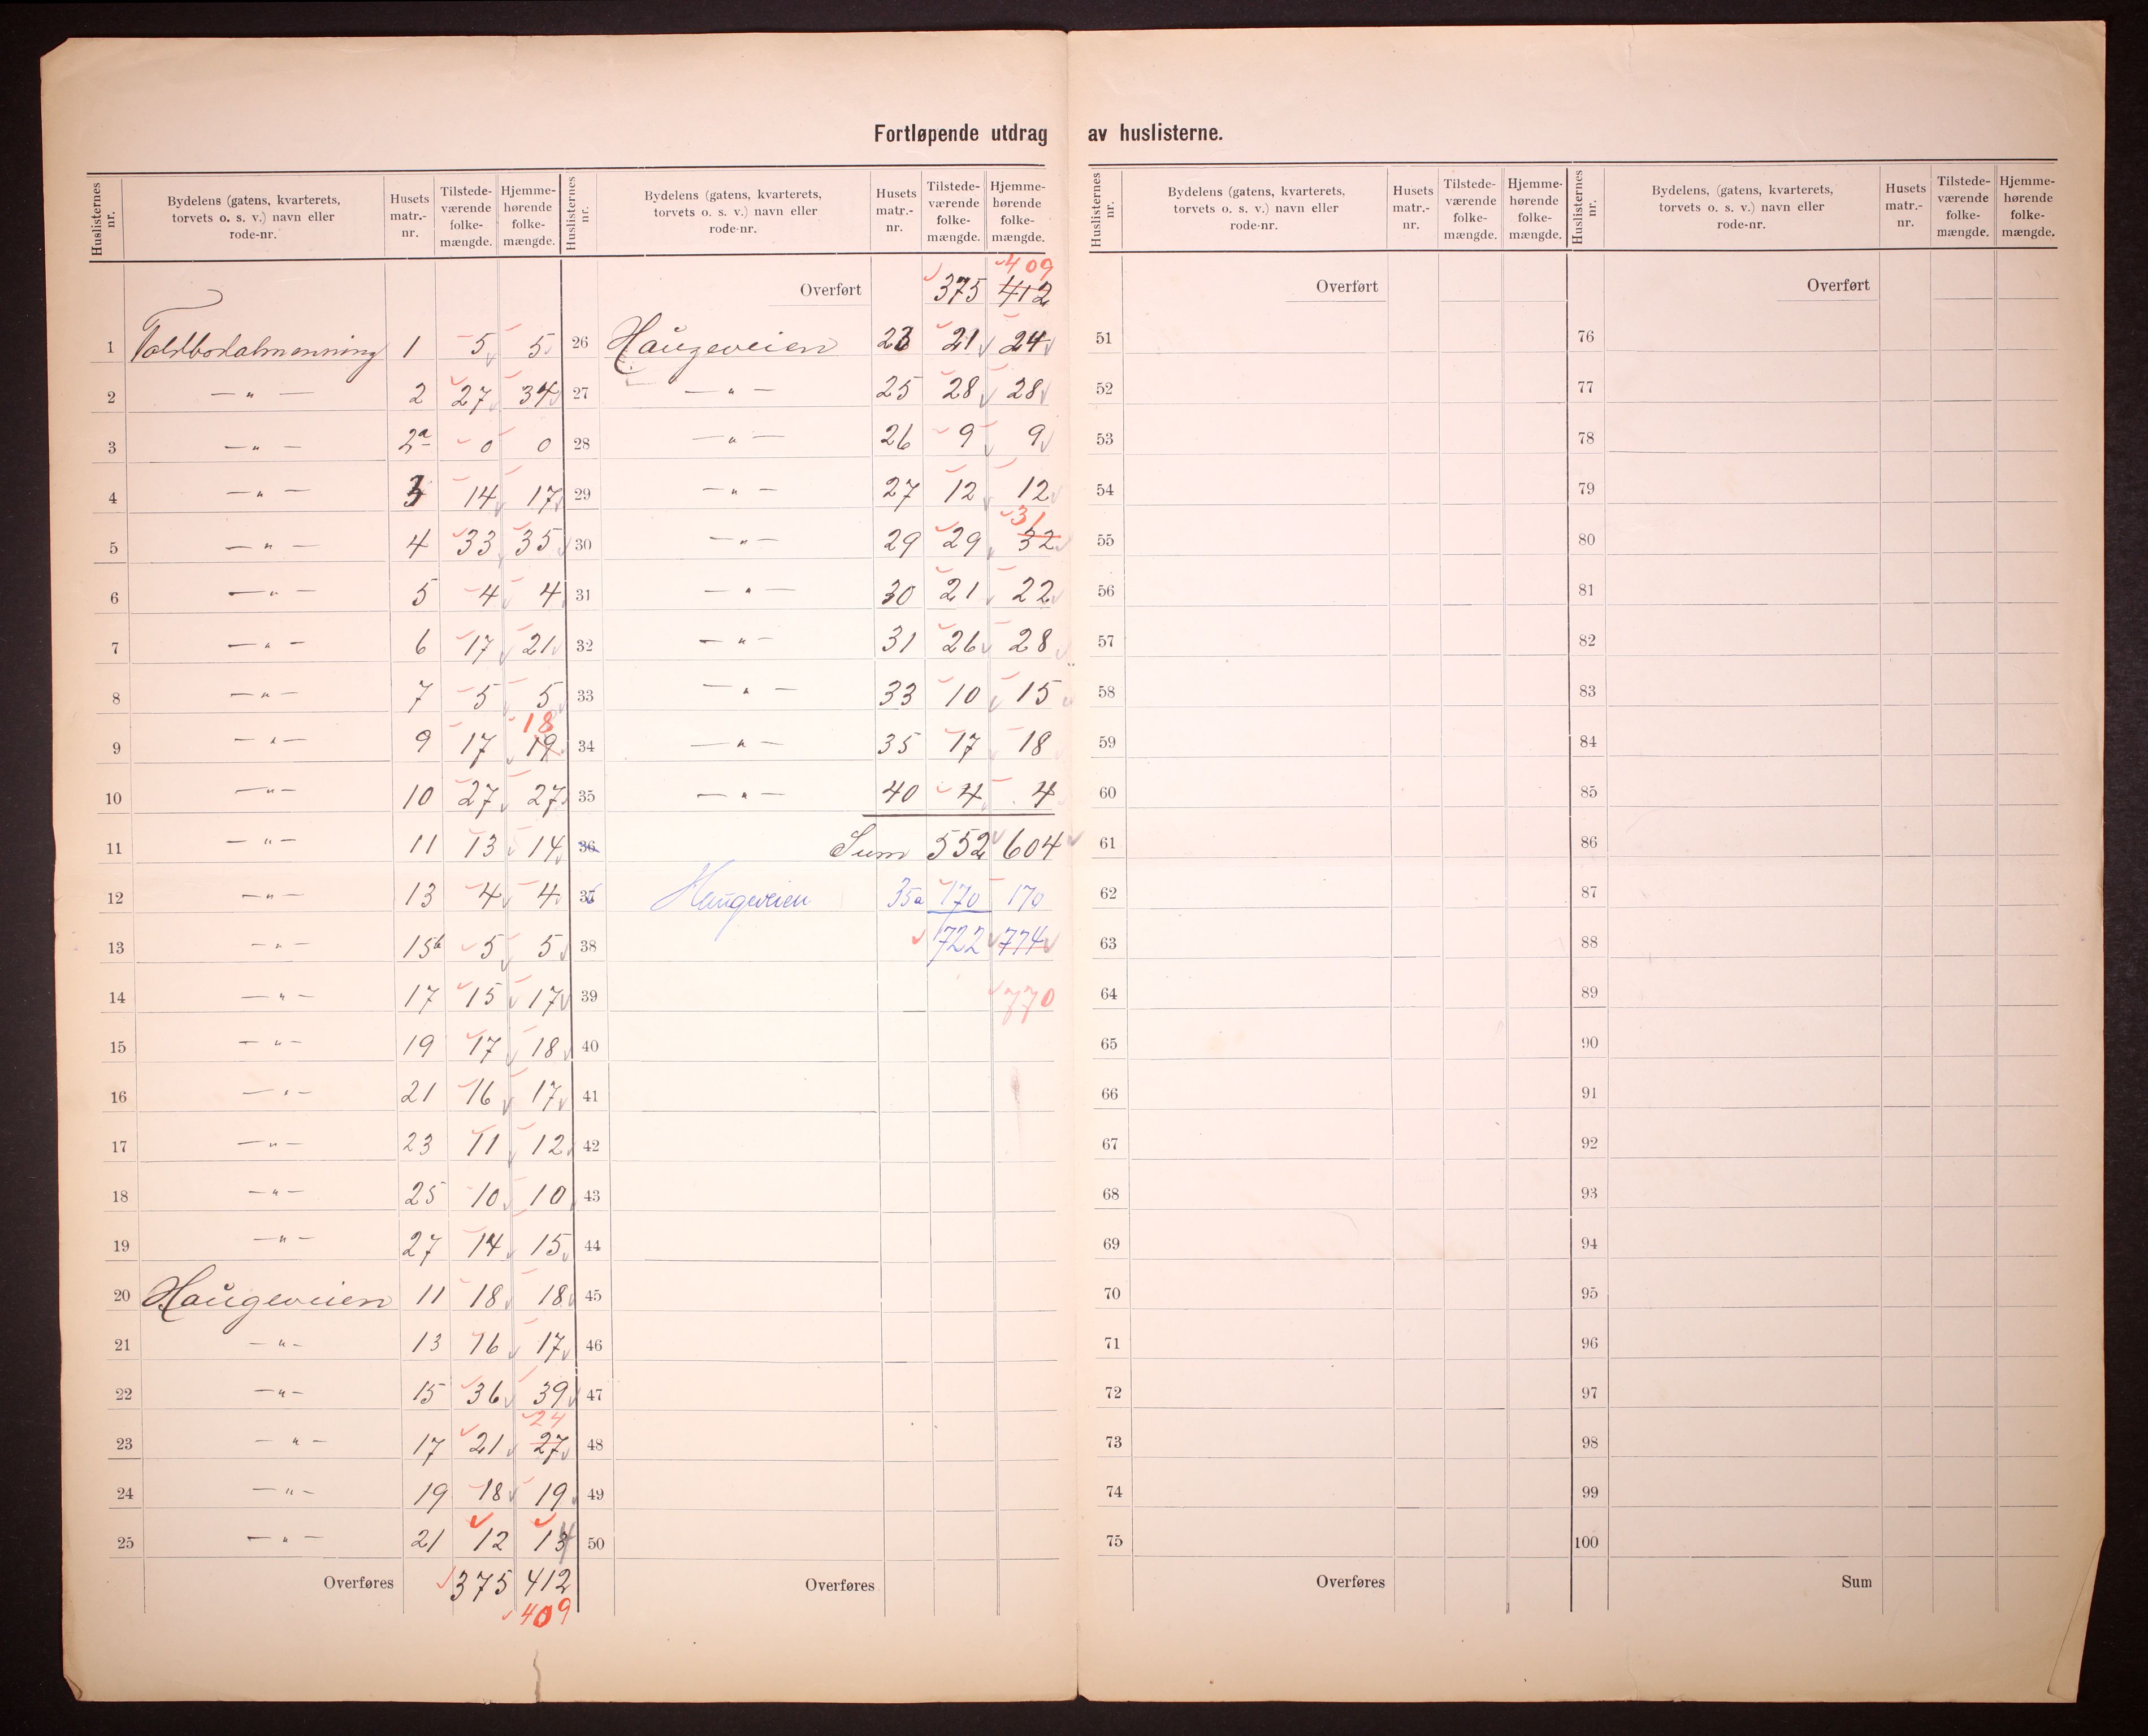 Fortløpende utdrag av huslisterne.
Huslisternes nr. | Bydelens (gatens, kvarterets, torvets o. s. v.) navn eller rode-nr. | Husets matr.-nr. | Tilstede-værende folke-mængde. | Hjemme-hørende folke-mængde.
1 Toldbodalmenning 1 5 5
2 — " — 2 27 34
3 — " — 2a 0 0
4 — " — 3 14 17
5 — " — 4 33 35
6 — " — 5 4 4
7 — " — 6 17 21
8 — " — 7 5 5
9 — " — 9 17 19 18
10 — " — 10 27 27
11 — " — 11 13 14
12 — " — 13 4 4
13 — " — 15b 5 5
14 — " — 17 15 17
15 — " — 19 17 18
16 — " — 21 16 17
17 — " — 23 11 12
18 — " — 25 10 10
19 — " — 27 14 15
20 Haugeveien 11 18 18
21 — " — 13 16 17
22 — " — 15 36 39
23 — " — 17 21 27 24
24 — " — 19 18 19
25 — " — 21 12 14
Overføres 375 412
409
Huslisternes nr. | Bydelens (gatens, kvarterets, torvets o. s. v.) navn eller rode-nr. | Husets matr.-nr. | Tilstede-værende folke-mængde. | Hjemme-hørende folke-mængde.
409
Overført 375 412
26 Haugeveien 23 21 24
27 — " — 25 28 28
28 — " — 26 9 9
29 — " — 27 12 12
30 — " — 29 29 32 31
31 — " — 30 21 22
32 — " — 31 26 28
33 — " — 33 10 15
34 — " — 35 17 18
35 — " — 40 4 4
36 Sum 552 604
36 Haugeveien 35a 170 170
38 722 774
39 770
40
41
42
43
44
45
46
47
48
49
50
Overføres
Huslisternes nr. | Bydelens (gatens, kvarterets, torvets o. s. v.) navn eller rode-nr. | Husets matr.-nr. | Tilstede-værende folke-mængde. | Hjemme-hørende folke-mængde.
Overført
51
52
53
54
55
56
57
58
59
60
61
62
63
64
65
66
67
68
69
70
71
72
73
74
75
Overføres
Huslisternes nr. | Bydelens (gatens, kvarterets, torvets o. s. v.) navn eller rode-nr. | Husets matr.-nr. | Tilstede-værende folke-mængde. | Hjemme-hørende folke-mængde.
Overført
76
77
78
79
80
81
82
83
84
85
86
87
88
89
90
91
92
93
94
95
96
97
98
99
100
Sum